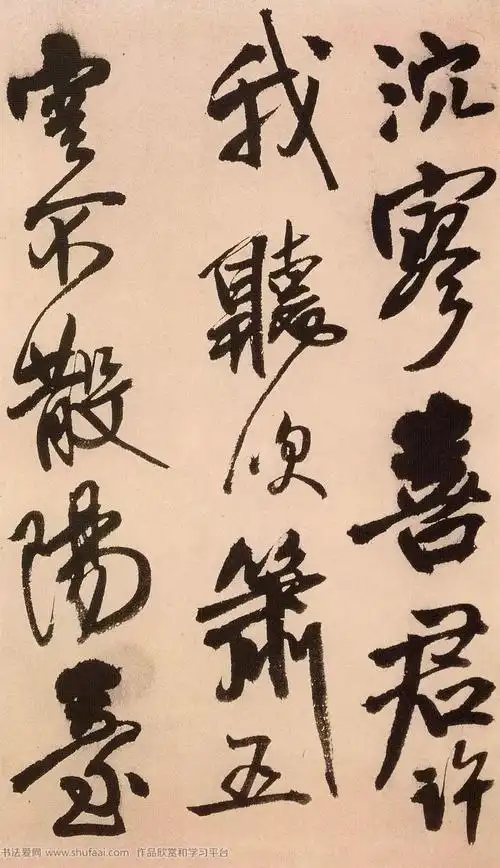 泬寥喜君許
我聽吹簫五
雲不散陽臺
书法爱网 www.shufaai.com 作品欣赏和学习平台